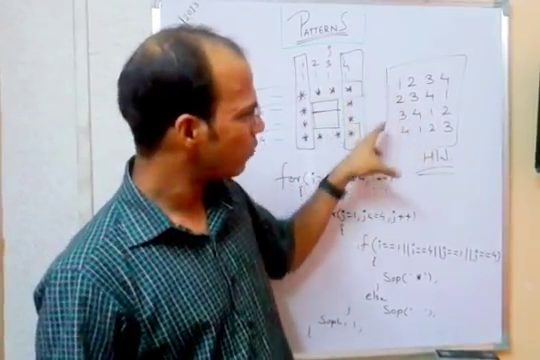 2013
PATTERNS
1 2 3 4
* * * *
* *
* *
* * * *
1 2 3 4
2 3 4 1
3 4 1 2
4 1 2 3
H/W
for(i=
(j=1, j<=4, j++)
{
if(i==1||i==4||j==1||j==4)
{
Sop("*"),
}
else
Sop(" "),
}
Sop( ),
}